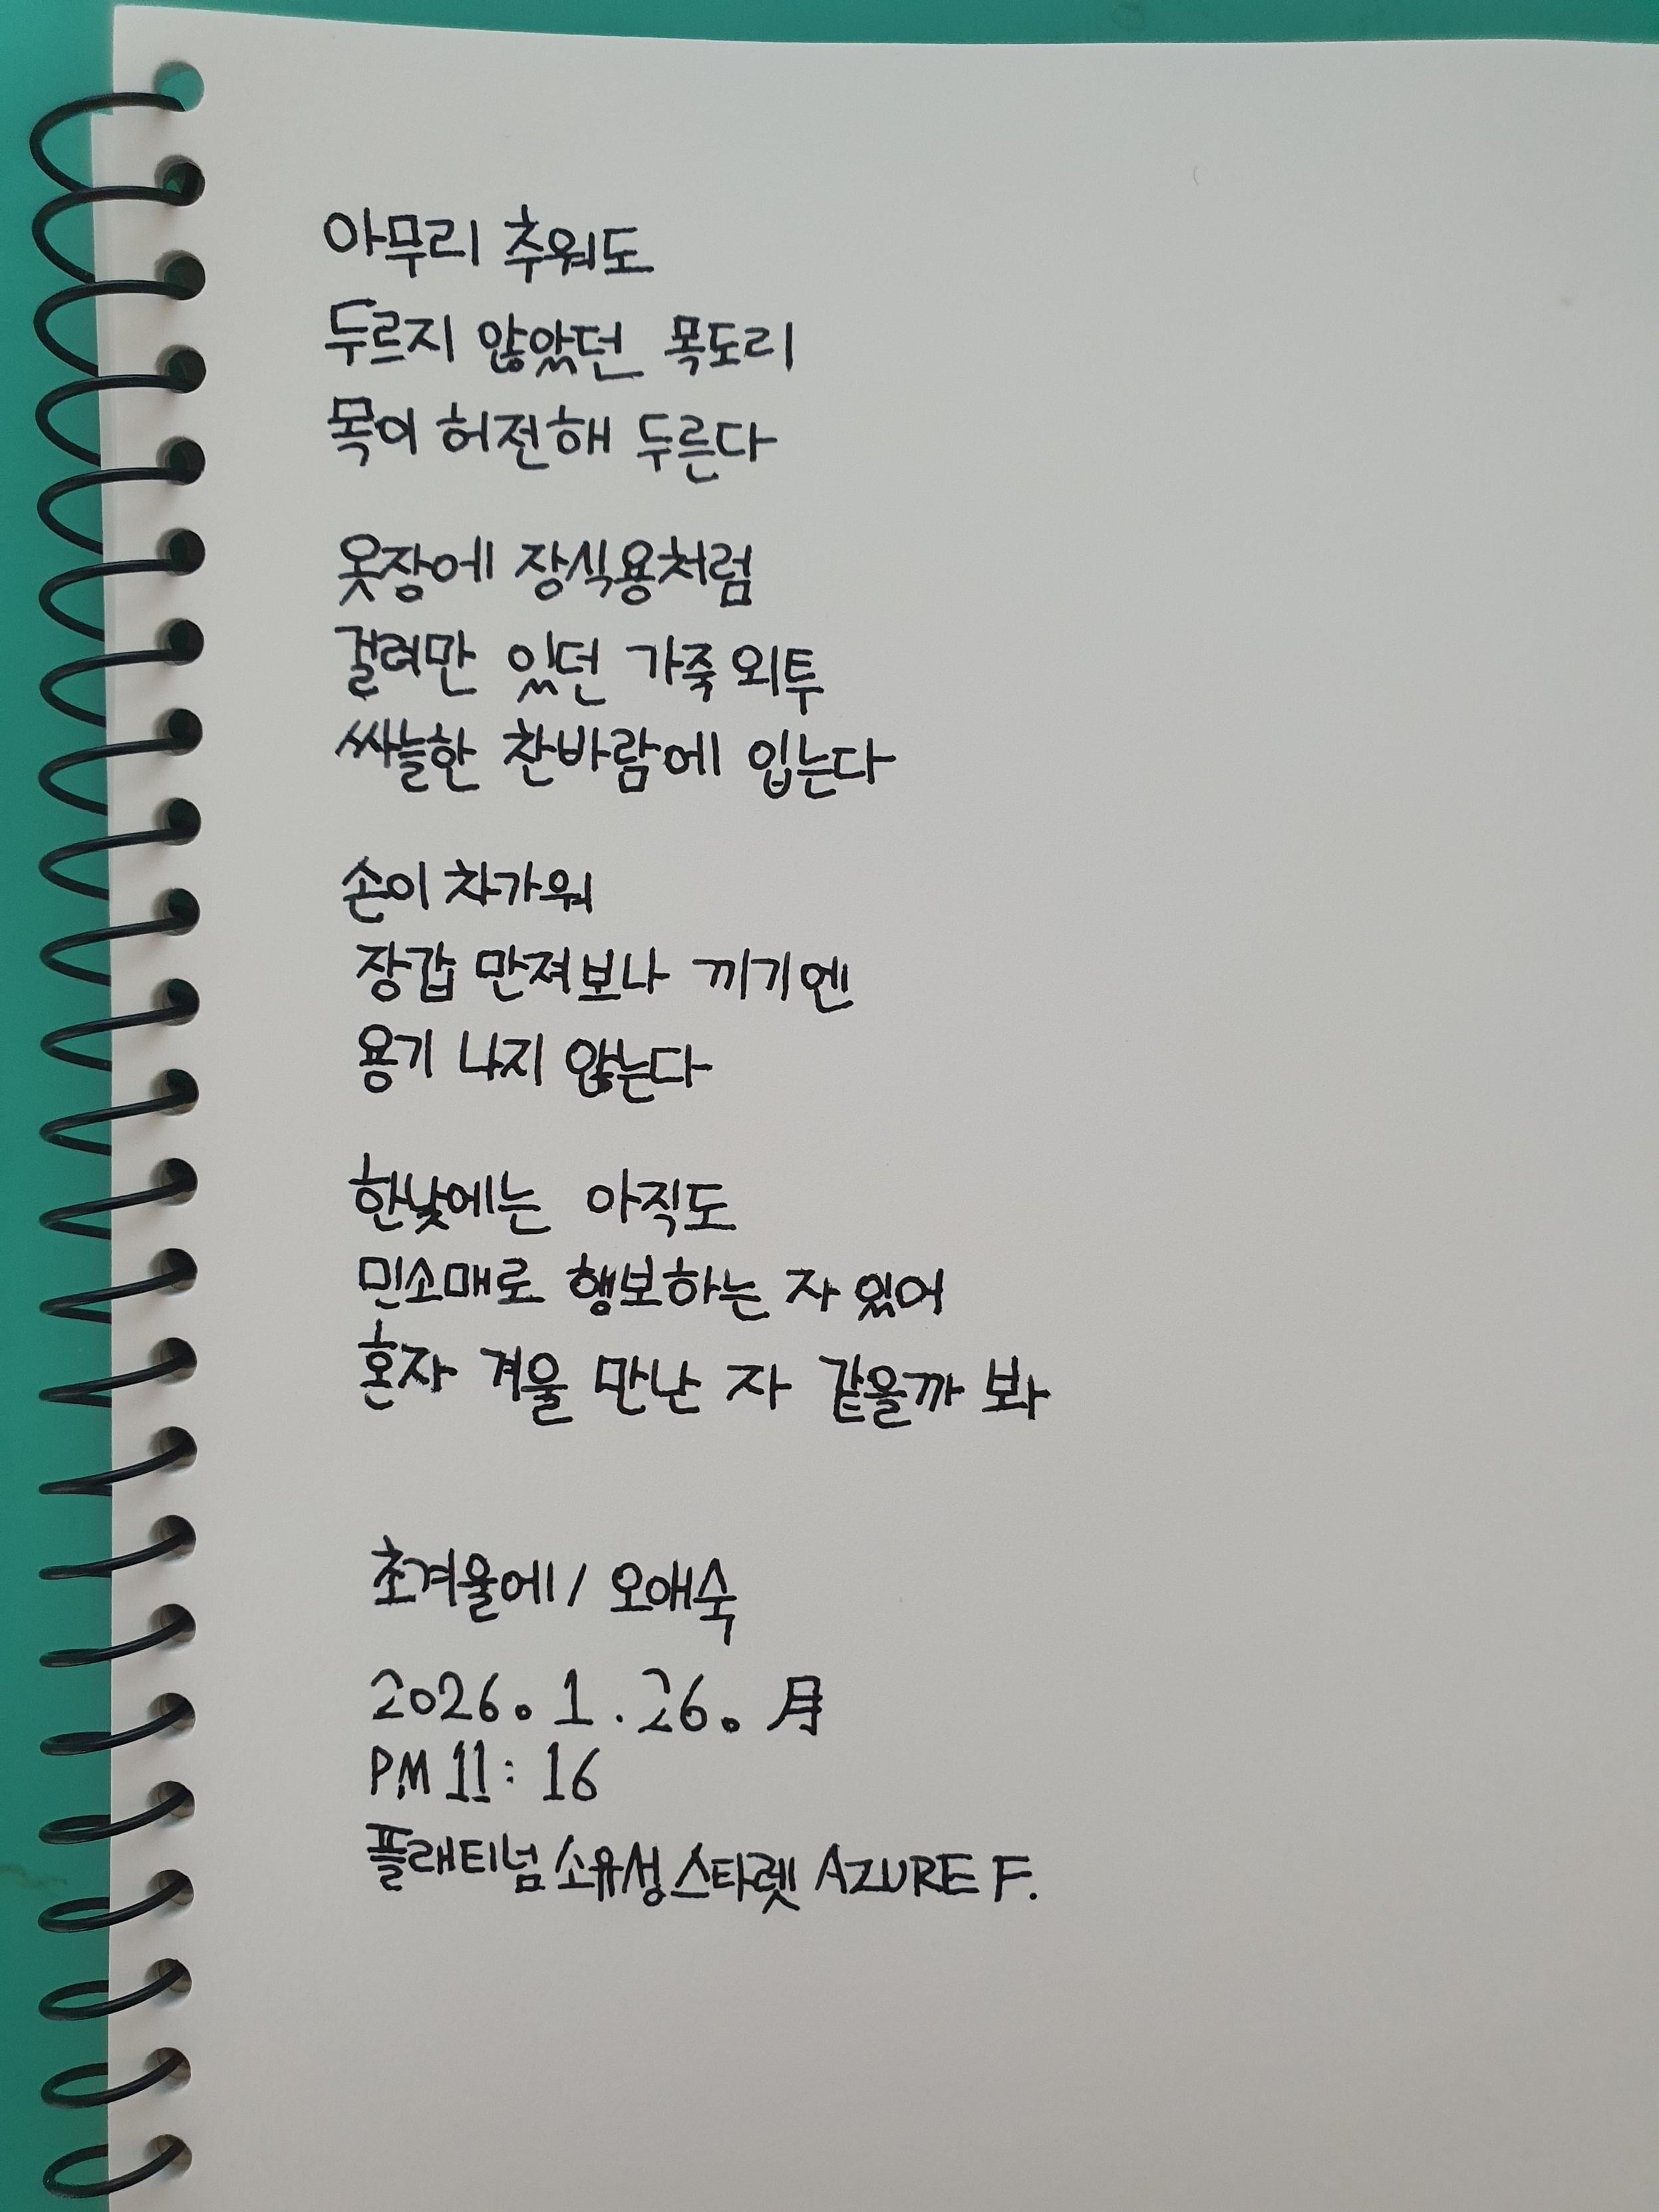 아무리 추워도
두르지 않았던 목도리
목이 허전해 두른다
옷장에 장식용처럼
걸려만 있던 가죽 외투
싸늘한 찬바람에 입는다
손이 차가워
장갑 만져보나 끼기엔
용기 나지 않는다
한낮에는 아직도
민소매로 행보하는 자 있어
혼자 겨울 만난 자 같을까 봐
초겨울에/ 오애숙
2026. 1. 26. 月
PM 11: 16
플래티넘 소유성 스타렛 AZURE F.